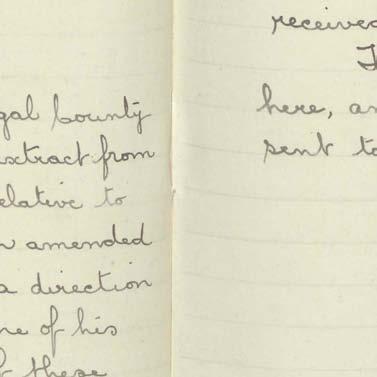 gal County
extract from
relative to
amended
a direction
ne of his
of these
received
here, an
sent to